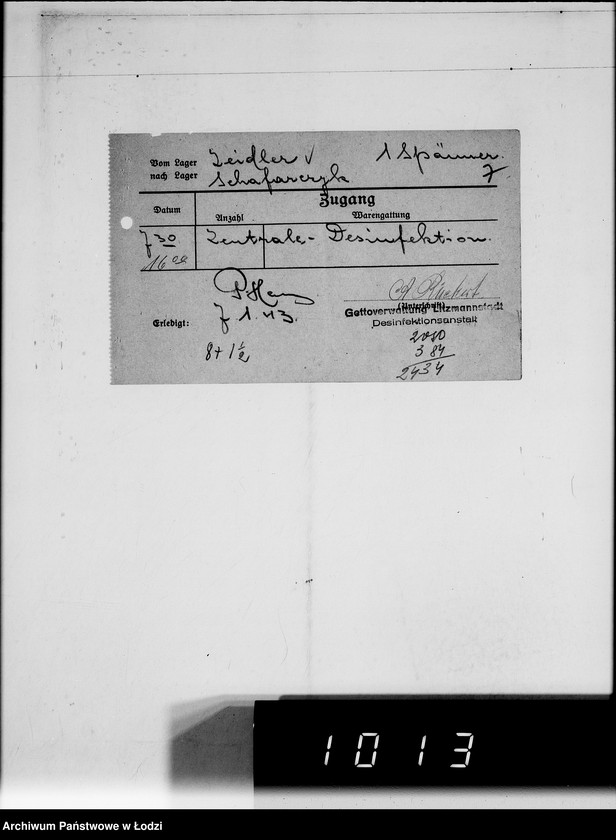 Vom Lager Zeidler √ 1 Spänner.
nach Lager Schafarczyk 7
Zugang
Datum Anzahl Warengattung
7 30 Zentrale- Desinfektion.
16 00
(Unterschrift)
Gettoverwaltung Litzmannstadt
7 1.43.
Erledigt: Desinfektionsanstalt
8+1½
2050
384
2434
1013
Archiwum Państwowe w Łodzi